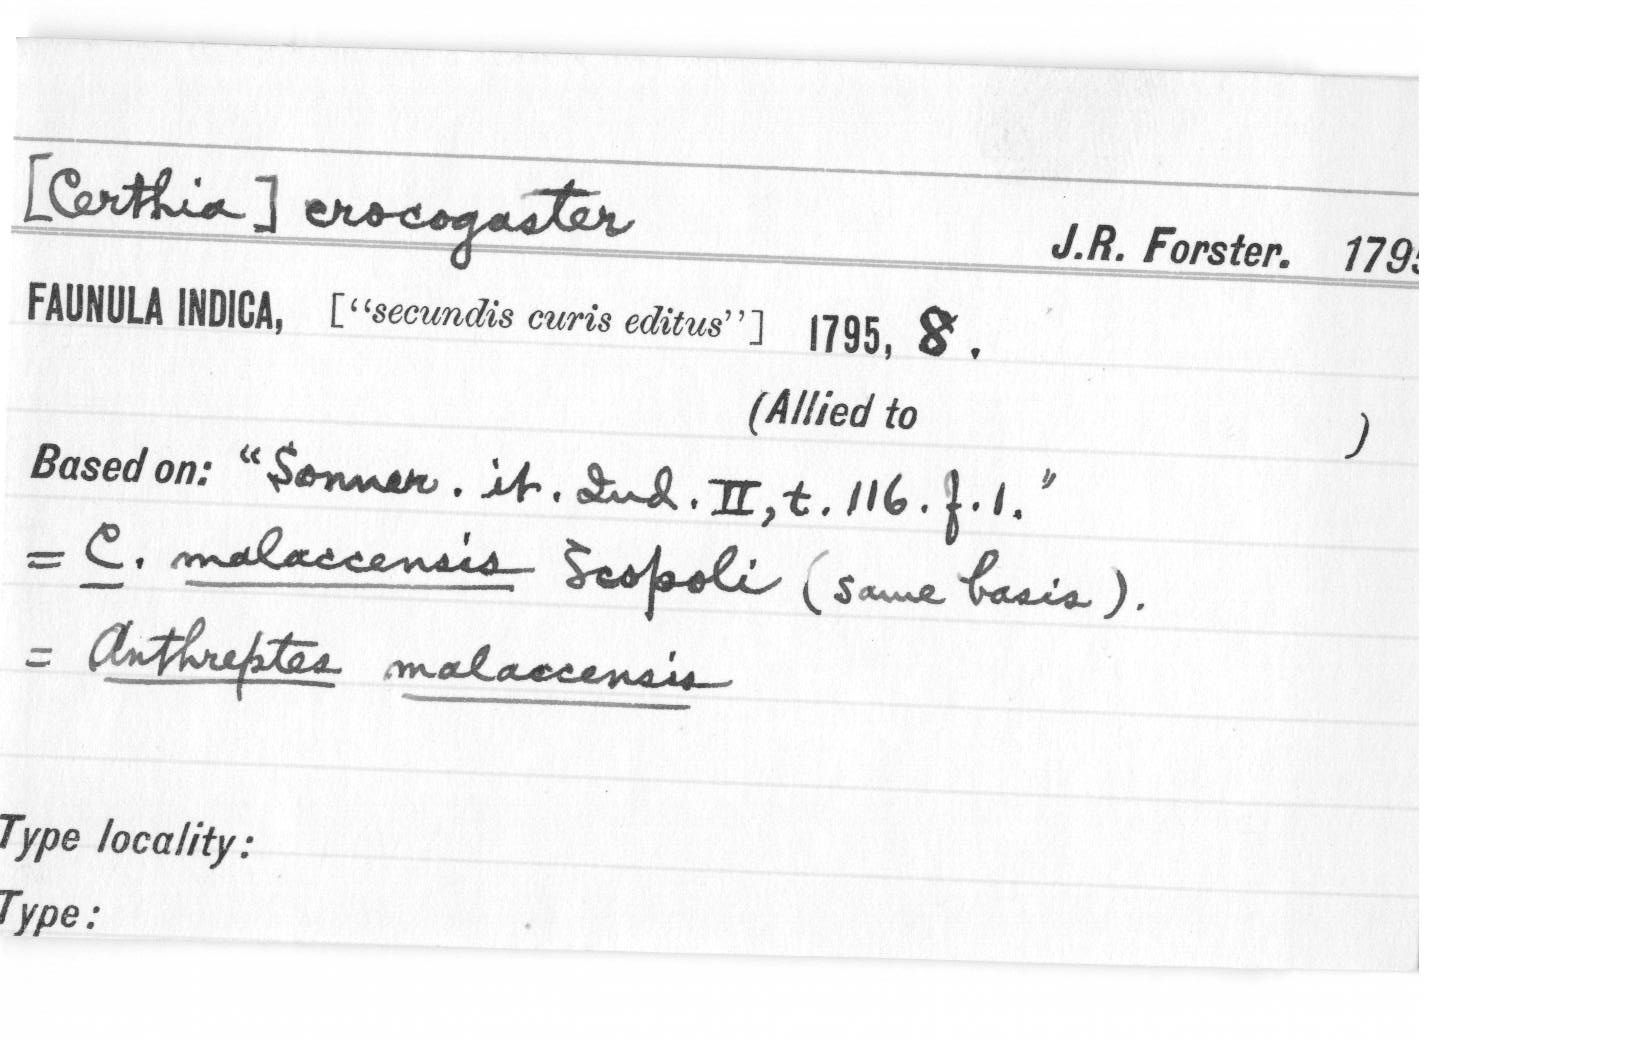 [Certhia] crocogaster
J.R. Forster. 179
FAUNULA INDICA, [“secundis curis editus”] 1795, 8.
(Allied to )
Based on: “Sonner. it. Ind. II, t. 116. f. 1.”
= C. malaccensis Scopoli (same basis).
= Anthreptes malaccensis
Type locality:
Type: